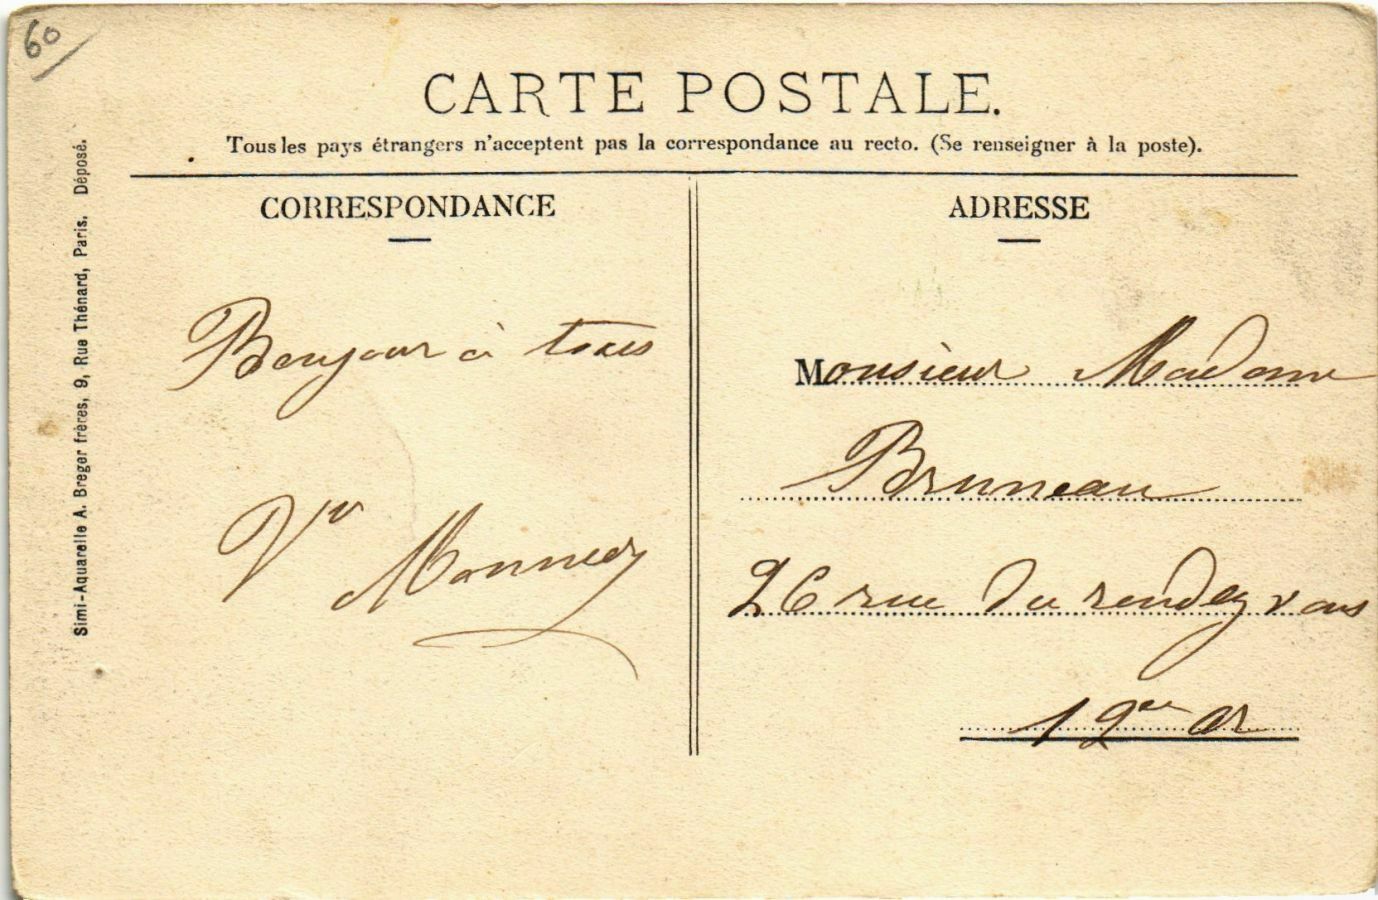 60
CARTE POSTALE.
Tous les pays étrangers n'acceptent pas la correspondance au recto. (Se renseigner à la poste).
CORRESPONDANCE
Bonjour à tous
Vv
ADRESSE
Monsieur Madame
Bruneau
26 rue du rendez vous
12me Ar
Simi-Aquarelle A. Breger frères, 9, Rue Thénard, Paris. Déposé.